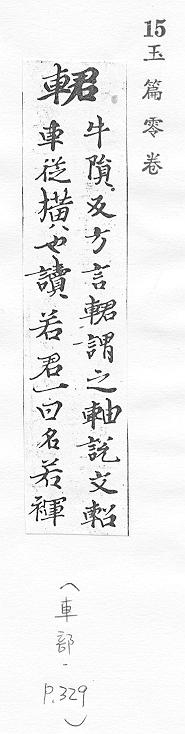 15玉篇零卷
輑
牛隕反方言輑謂之軸説文軺
車從橫也讀若君一曰名若褌
(車部-P.329)